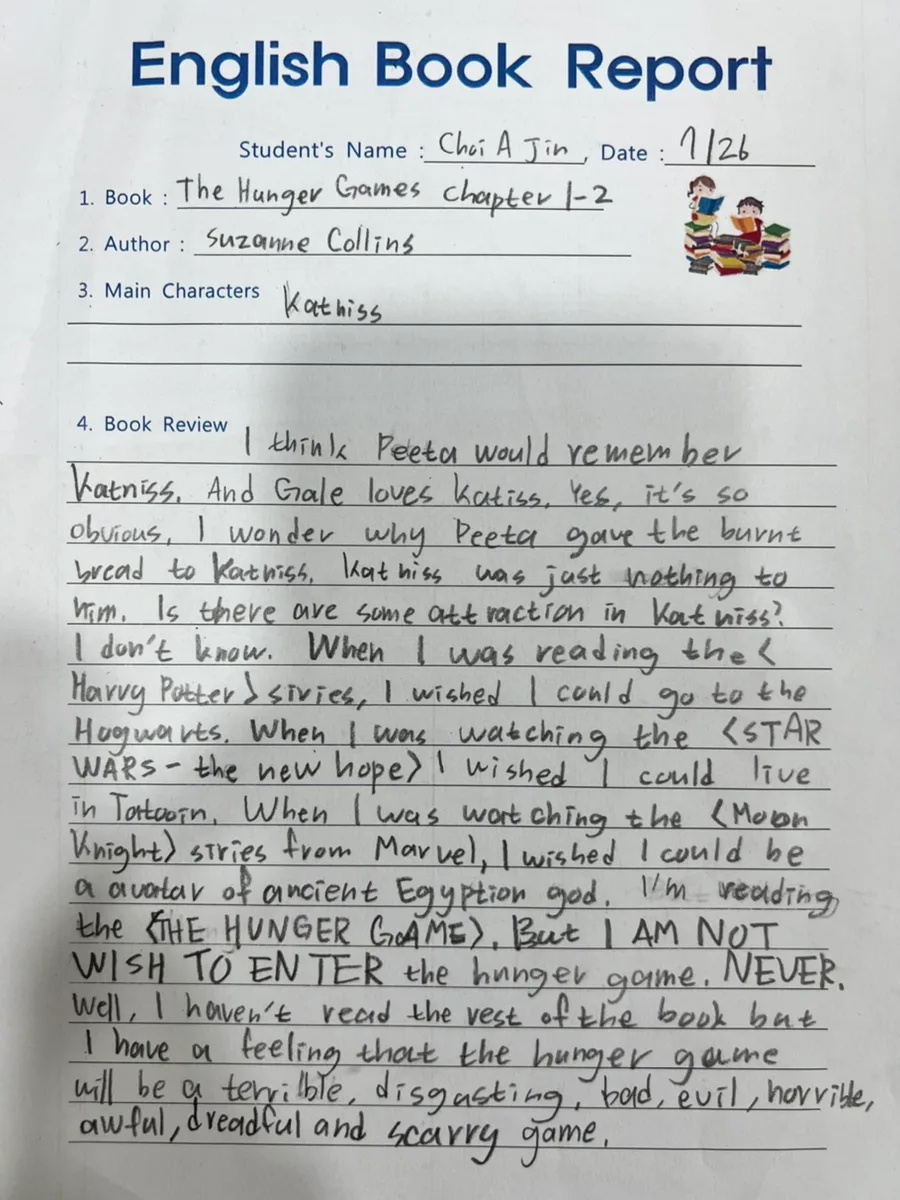 English Book Report
Student's Name : Choi A Jin, Date : 7/26
1. Book : The Hunger Games chapter 1-2
2. Author : Suzanne Collins
3. Main Characters Katniss
4. Book Review I think Peeta would remember
Katniss. And Gale loves Katiss. Yes, it's so
obvious, I wonder why Peeta gave the burnt
bread to Katniss. Katniss was just nothing to
him. Is there are some attraction in Katniss?
I don't know. When I was reading the <
Harry Potter> siries, I wished I could go to the
Hogwarts. When I was watching the <STAR
WARS - the new hope> I wished I could live
in Tatooin. When I was watching the <Moon
Knight> siries from Marvel, I wished I could be
a avatar of ancient Egyption god. I'm reading
the <THE HUNGER GAME>. But I AM NOT
WISH TO ENTER the hunger game. NEVER.
Well, I haven't read the rest of the book but
I have a feeling that the hunger game
will be a terrible, disgasting, bad, evil, horrible,
awful, dreadful and scarry game.